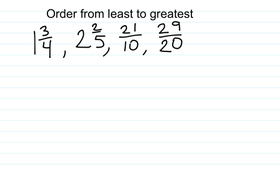 Order from least to greatest
1 3/4 , 2 2/5, 21/10, 29/20